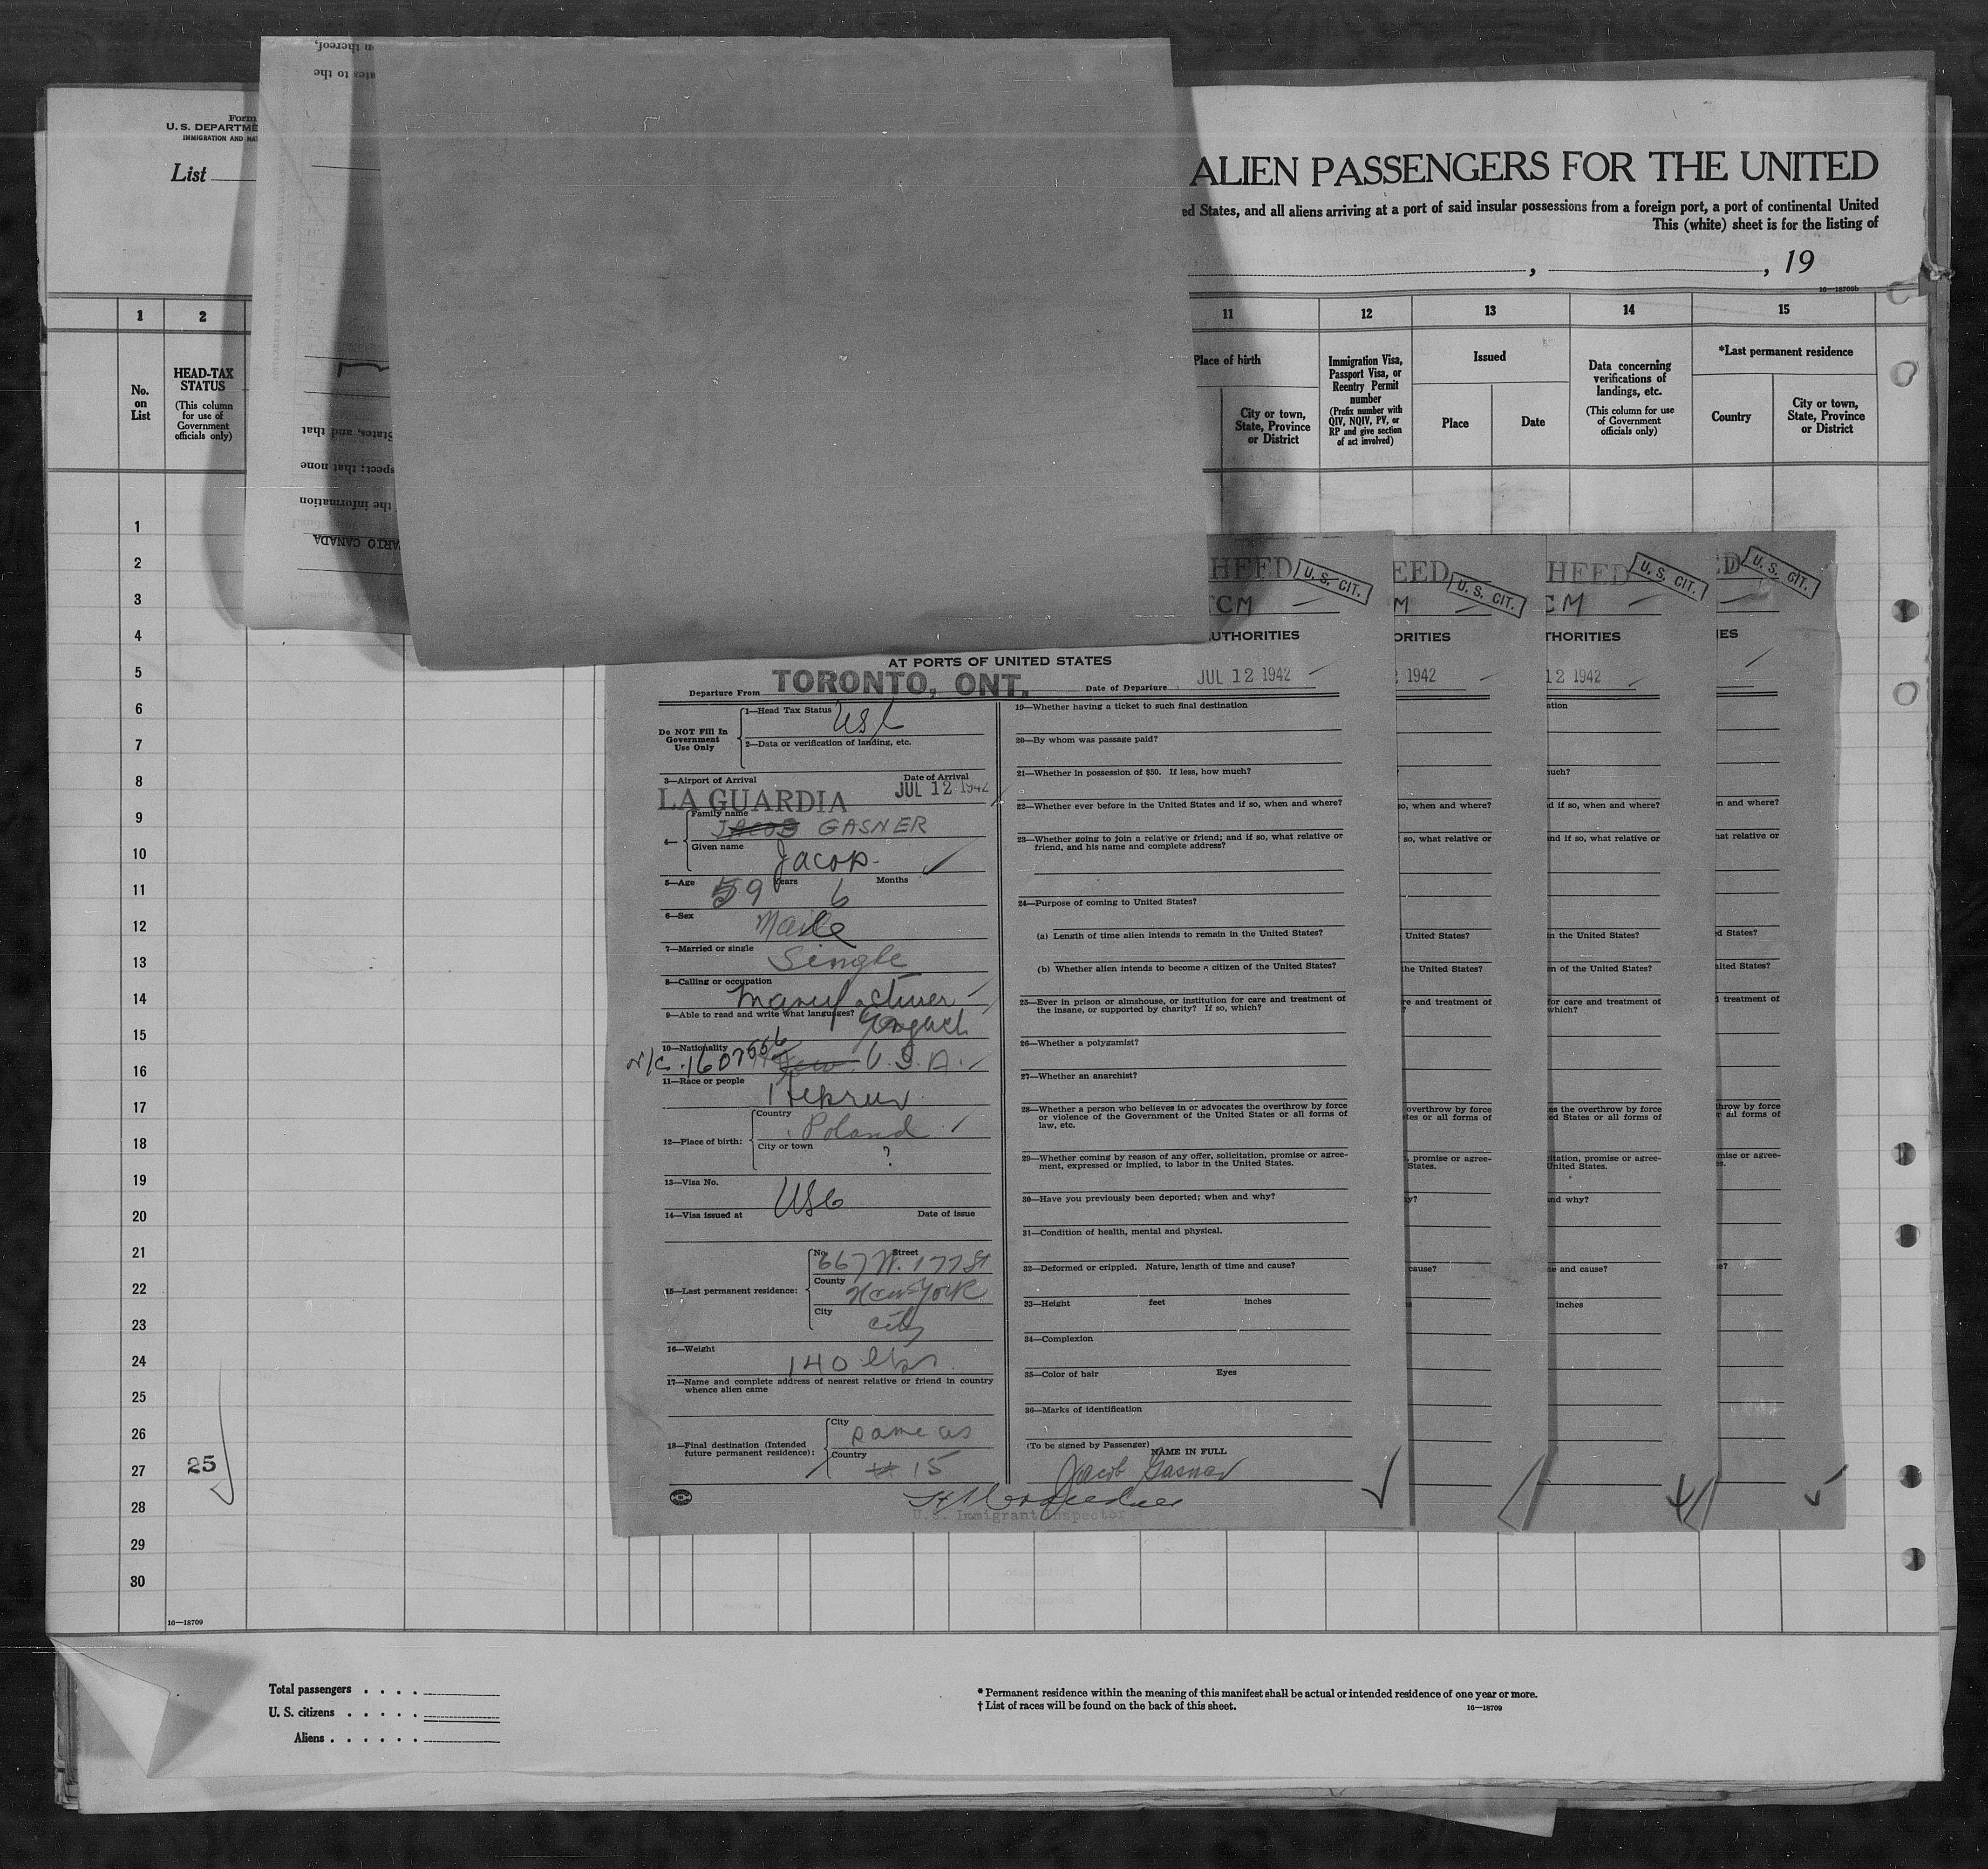 Form
U. S. DEPARTME
IMMIGRATION AND NAT
List
n thereof,
ates to the
States, and that
spect; that none
the information
ARIO CANADA
ALIEN PASSENGERS FOR THE UNITED
ed States, and all aliens arriving at a port of said insular possessions from a foreign port, a port of continental United
This (white) sheet is for the listing of
, , 19
16—18709b
1 2 11 12 13 14 15
No. on List
HEAD-TAX STATUS
(This column for use of Government officials only)
Place of birth
City or town, State, Province or District
Immigration Visa, Passport Visa, or Reentry Permit number
(Prefix number with QIV, NQIV, PV, or RP and give section of act involved)
Issued
Place Date
Data concerning verifications of landings, etc.
(This column for use of Government officials only)
*Last permanent residence
Country
City or town, State, Province or District
1
2
3
4
5
6
7
8
9
10
11
12
13
14
15
16
17
18
19
20
21
22
23
24
25
26
27
28
29
30
25
16—18709
HEED U. S. CIT. EED U. S. CIT. HEED U. S. CIT. ED U. S. CIT.
CM M CM
UTHORITIES ORITIES THORITIES IES
AT PORTS OF UNITED STATES
Departure From TORONTO, ONT. Date of Departure JUL 12 1942
2 1942
12 1942
Do NOT Fill In Government Use Only
1—Head Tax Status USC
2—Data or verification of landing, etc.
3—Airport of Arrival Date of Arrival
LA GUARDIA JUL 12 1942
4— Family name
JACOB GASNER
Given name Jacob
5—Age 59 Years 6 Months
6—Sex Male
7—Married or single Single
8—Calling or occupation
Manufacturer
9—Able to read and write what languages? English
10—Nationality
N/C. 1607556 U.S.A.
11—Race or people
Hebrew
12—Place of birth:
Country
Poland
City or town
?
13—Visa No.
USC
14—Visa issued at Date of issue
15—Last permanent residence:
No. Street
667 W. 177 St
County
New York
City
city
16—Weight
140 lbs.
17—Name and complete address of nearest relative or friend in country whence alien came
18—Final destination (Intended future permanent residence):
City
same as
Country
# 15
19—Whether having a ticket to such final destination
20—By whom was passage paid?
21—Whether in possession of $50. If less, how much?
22—Whether ever before in the United States and if so, when and where?
23—Whether going to join a relative or friend; and if so, what relative or friend, and his name and complete address?
24—Purpose of coming to United States?
(a) Length of time alien intends to remain in the United States?
(b) Whether alien intends to become a citizen of the United States?
25—Ever in prison or almshouse, or institution for care and treatment of the insane, or supported by charity? If so, which?
26—Whether a polygamist?
27—Whether an anarchist?
28—Whether a person who believes in or advocates the overthrow by force or violence of the Government of the United States or all forms of law, etc.
29—Whether coming by reason of any offer, solicitation, promise or agreement, expressed or implied, to labor in the United States.
30—Have you previously been deported; when and why?
31—Condition of health, mental and physical.
32—Deformed or crippled. Nature, length of time and cause?
33—Height feet inches
34—Complexion
35—Color of hair Eyes
36—Marks of identification
(To be signed by Passenger)
NAME IN FULL
Jacob Gasner
U.S. Immigrant Inspector
Total passengers . . . .
U. S. citizens . . . . .
Aliens . . . . . .
* Permanent residence within the meaning of this manifest shall be actual or intended residence of one year or more.
† List of races will be found on the back of this sheet. 16—18709